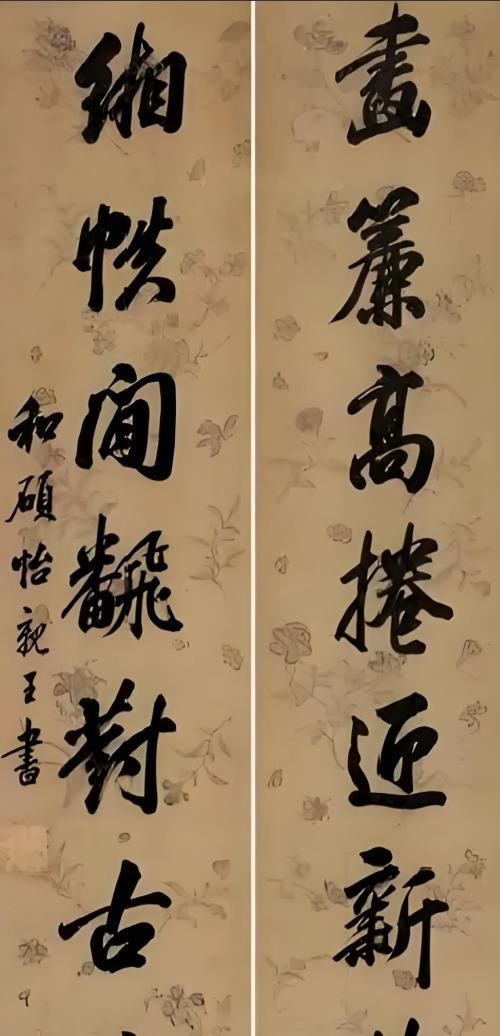 畫簾高捲迎新
緗帙閒飜對古
和碩怡親王書